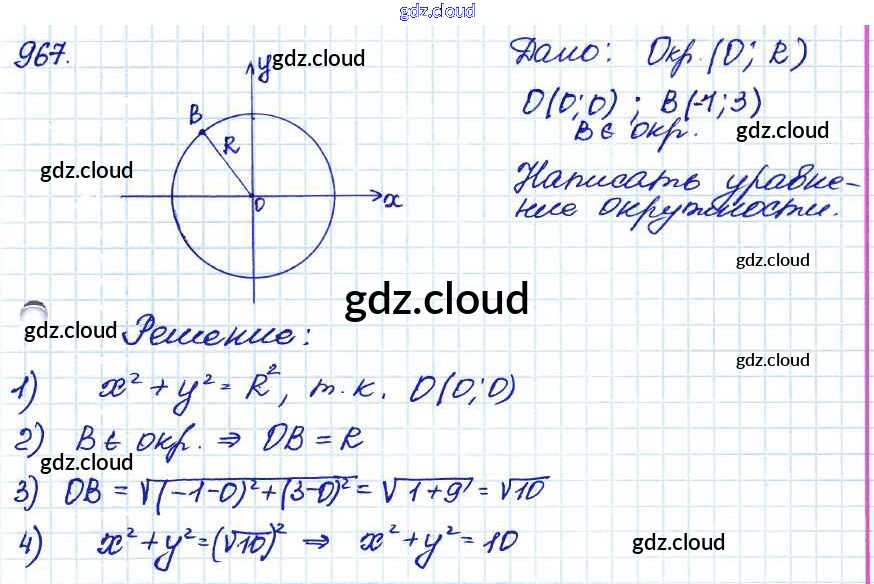 gdz.cloud
967.
y gdz.cloud
Дано: Окр. (O; R)
O(0;0); B(-1;3)
B ∈ окр. gdz.cloud
B
R
gdz.cloud
O
x
Написать уравне-
ние окружности.
gdz.cloud
gdz.cloud
gdz.cloud Решение:
gdz.cloud
1) x² + y² = R², т.к. O(0;0)
2) B ∈ окр. ⇒ OB = R
gdz.cloud
3) OB = √(-1-0)²+(3-0)² = √1+9 = √10
4) x² + y² = (√10)² ⇒ x² + y² = 10
gdz.cloud